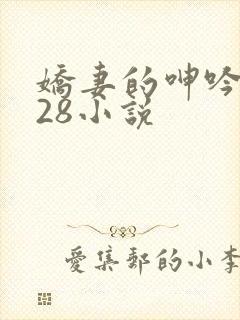 嬌妻的呻吟
28小說
愛集郵的小李